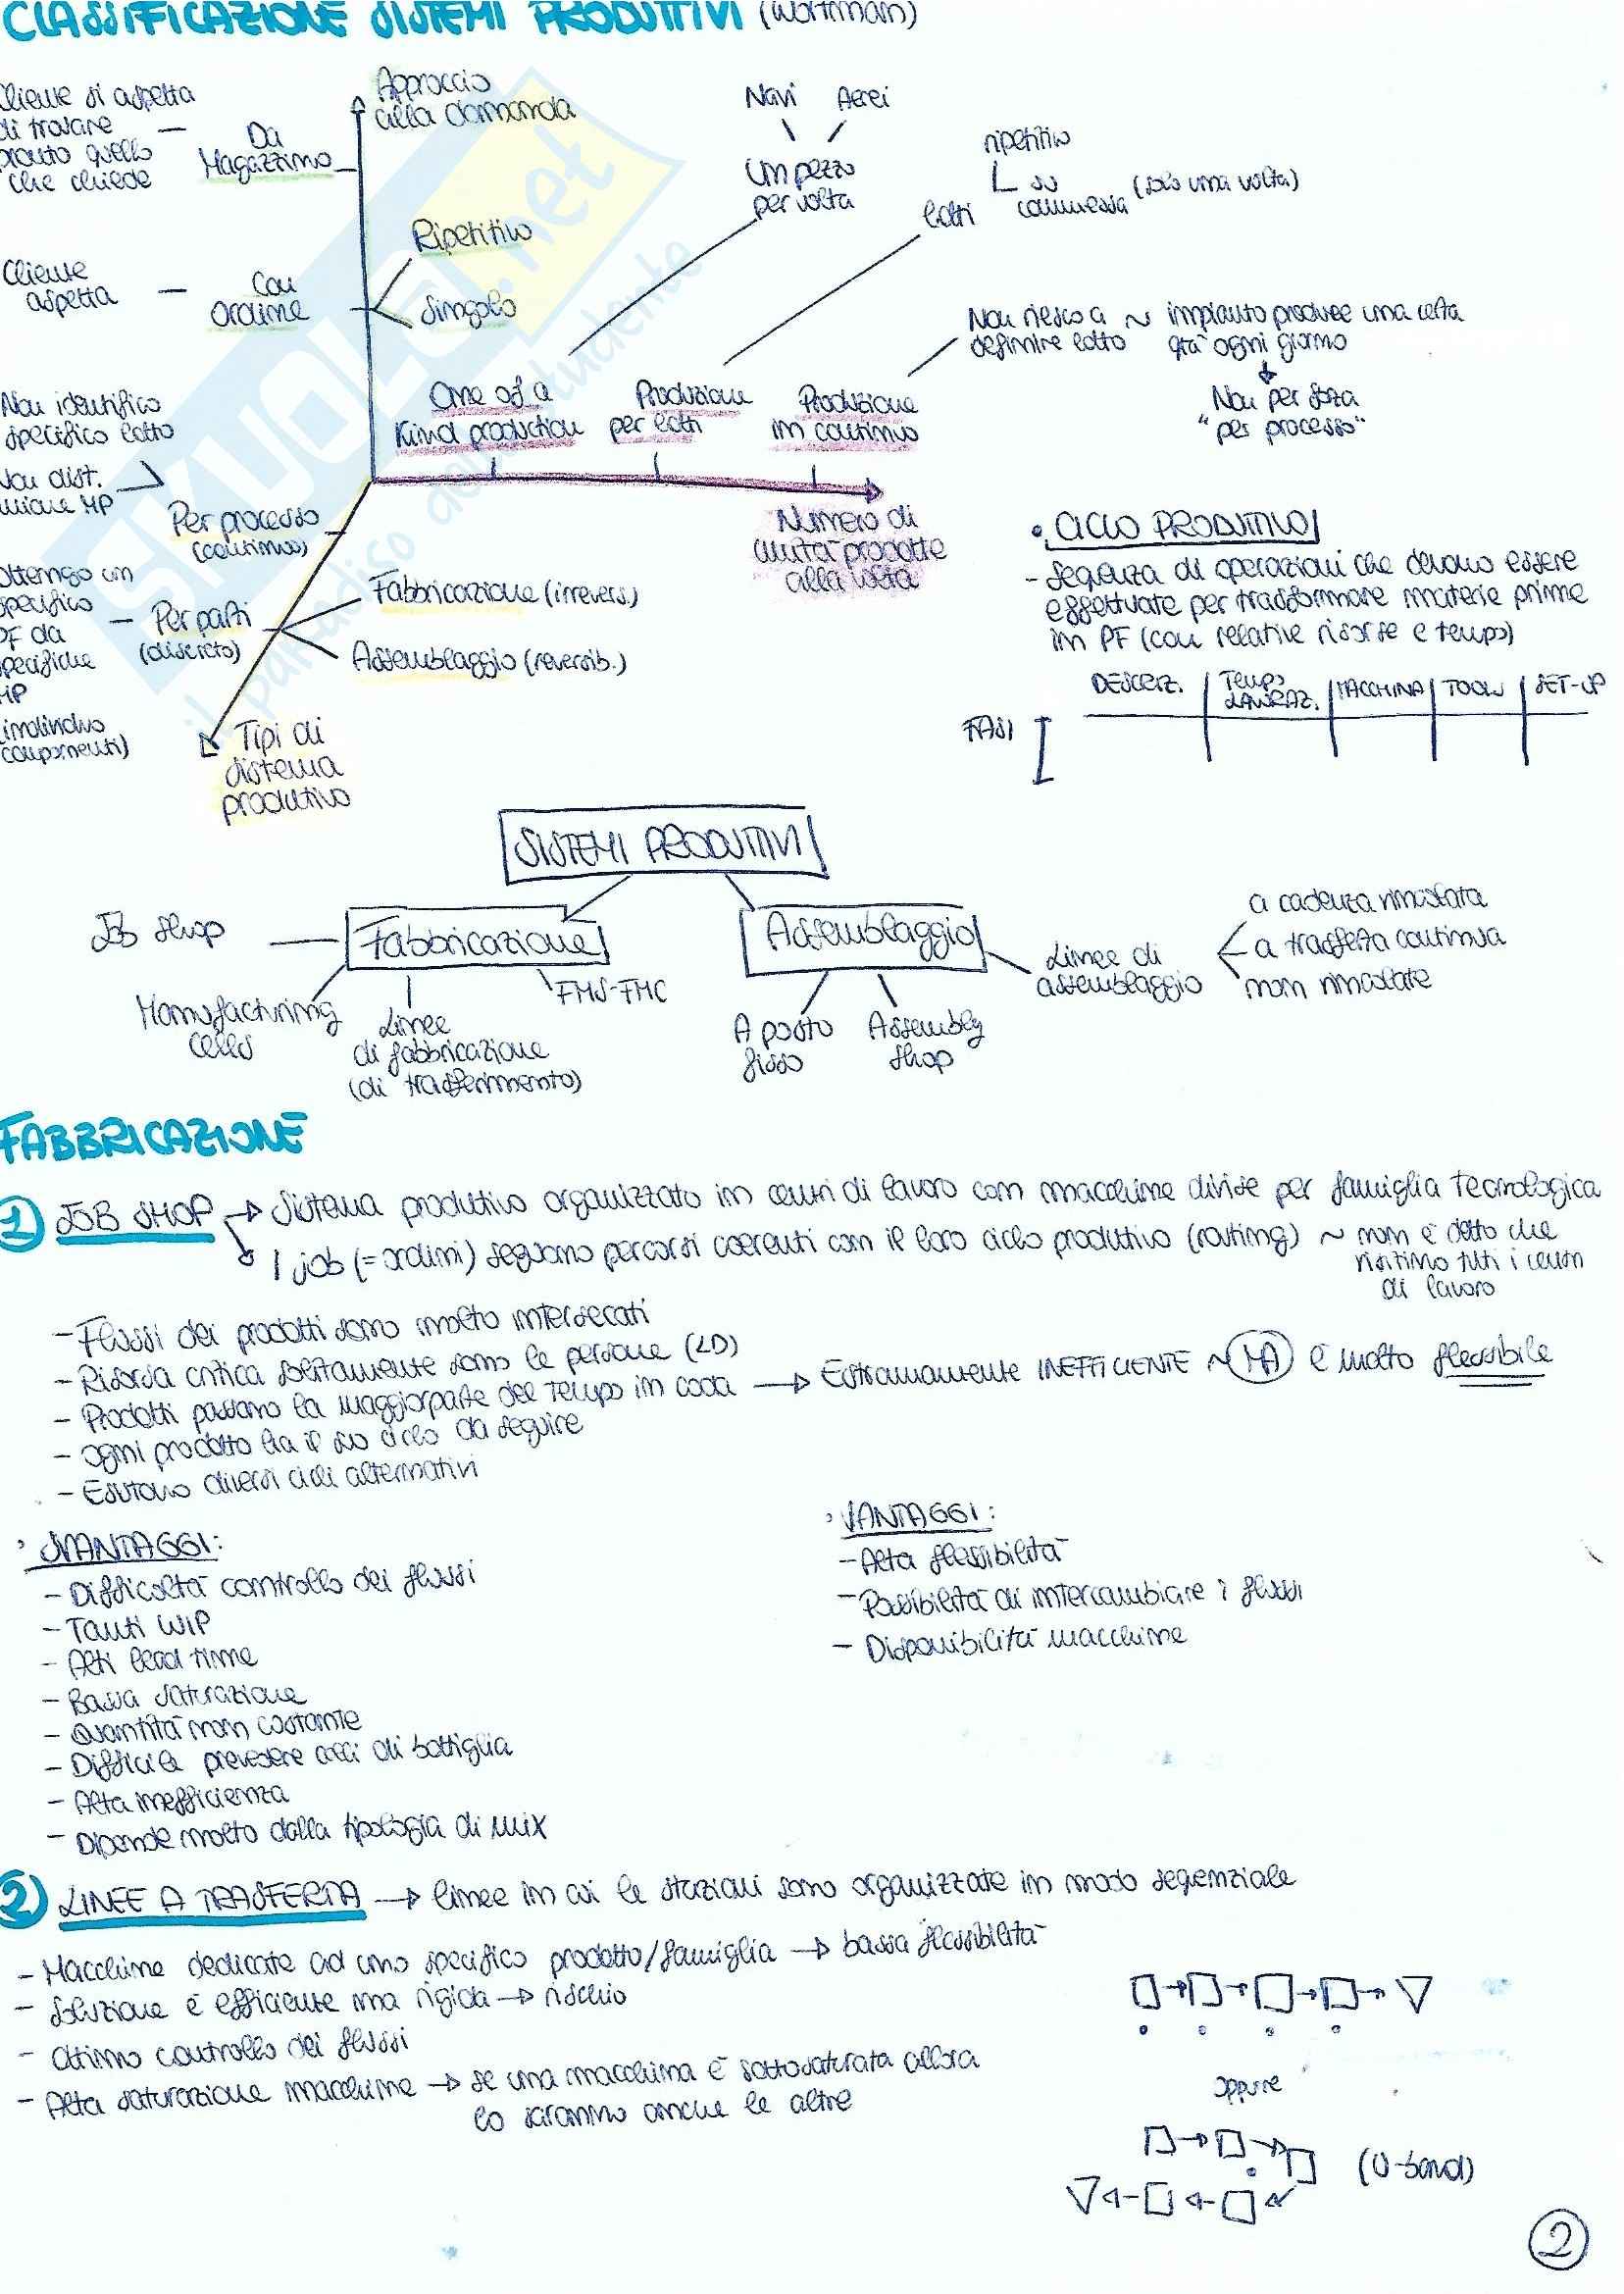 CLASSIFICAZIONE SISTEMI PRODUTTIVI (Wortmann)
Cliente si aspetta
di trovare
pronto quello
che chiede
Da
Magazzino
Approccio
alla domanda
Cliente
aspetta
Con
ordine
Ripetitivo
Singolo
Navi
Aerei
Un pezzo
per volta
lotti
ripetitivo
su
commessa
(solo una volta)
Non riesco a
definire lotto
~ impianto produce una certa
qtà ogni giorno
Non per forza
"per processo"
One of a
Kind production
Produzione
per lotti
Produzione
in continuo
Numero di
unità prodotte
alla volta
Non identifico
specifico lotto
Non dist.
MP
Per processo
(continuo)
Ottengo un
specifico
PF da
specifiche
MP
(individuo
componenti)
Per parti
(discreto)
Fabbricazione (irrevers.)
Assemblaggio (reversib.)
Tipi di
sistema
produttivo
• CICLO PRODUTTIVO
- Sequenza di operazioni che devono essere
effettuate per trasformare materie prime
in PF (con relative risorse e tempo)
DESCRIZ.
Tempo
LAVORAZ.
MACCHINA
TOOLS
SET-UP
FASI
SISTEMI PRODUTTIVI
Job shop
Fabbricazione
Assemblaggio
Manufacturing
cells
Linee
di fabbricazione
(di trasferimento)
FMS-FMC
A posto
fisso
Assembly
shop
Linee di
assemblaggio
a cadenza rincostata
a trasferta continua
non rincostate
FABBRICAZIONE
1 JOB SHOP → Sistema produttivo organizzato in centri di lavoro con macchine divise per famiglia tecnologica
I job (= ordini) seguono percorsi coerenti con il loro ciclo produttivo (routing) ~ non è detto che
visitino tutti i centri
di lavoro
- Flussi dei prodotti sono molto intersecati
- Risorsa critica solitamente sono le persone (LD)
- Prodotti passano la maggiorparte del tempo in coda → Estramamente INEFFICIENTE ~ MA è molto flessibile
- Ogni prodotto ha il suo ciclo da seguire
- Esistono diversi cicli alternativi
• SVANTAGGI:
- Difficoltà controllo dei flussi
- Tanti WIP
- Alti lead time
- Bassa saturazione
- Quantità non costante
- Difficile prevedere colli di bottiglia
- Alta inefficienza
- Dipende molto dalla tipologia di mix
• VANTAGGI:
- Alta flessibilità
- Possibilità di intercambiare i flussi
- Disponibilità macchine
2 LINEE A TRASFERTA → linee in cui le stazioni sono organizzate in modo sequenziale
- Macchine dedicate ad uno specifico prodotto/famiglia → bassa flessibilità
- Soluzione è efficiente ma rigida → rischio
- Ottimo controllo dei flussi
- Alta saturazione macchine → se una macchina è sottosaturata allora
lo saranno anche le altre
oppure
(U-band)
2
SKUOLA.net
il paradiso dello studente